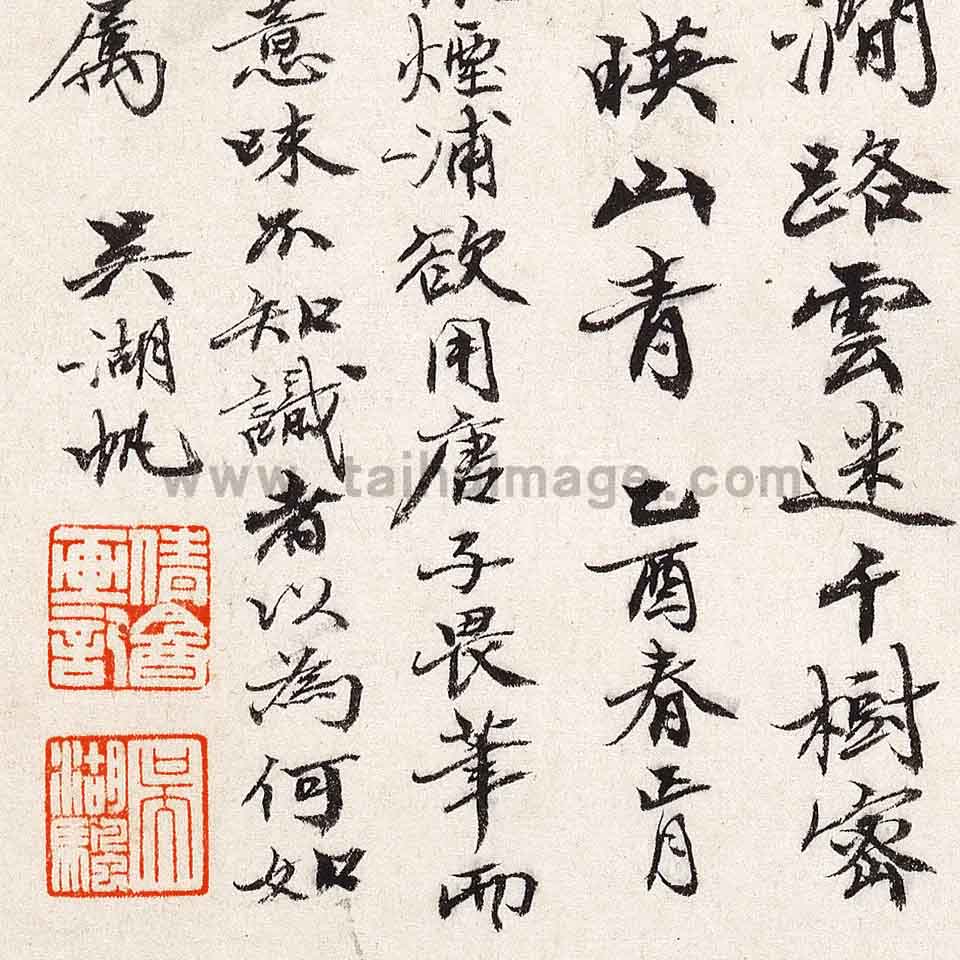 澗路雲迷千樹密
暎山青 乙酉春正月
煙浦欲用唐子畏筆而
意味不知識者以為何如
属 吴湖帆
倩盦畫記
吳湖颿